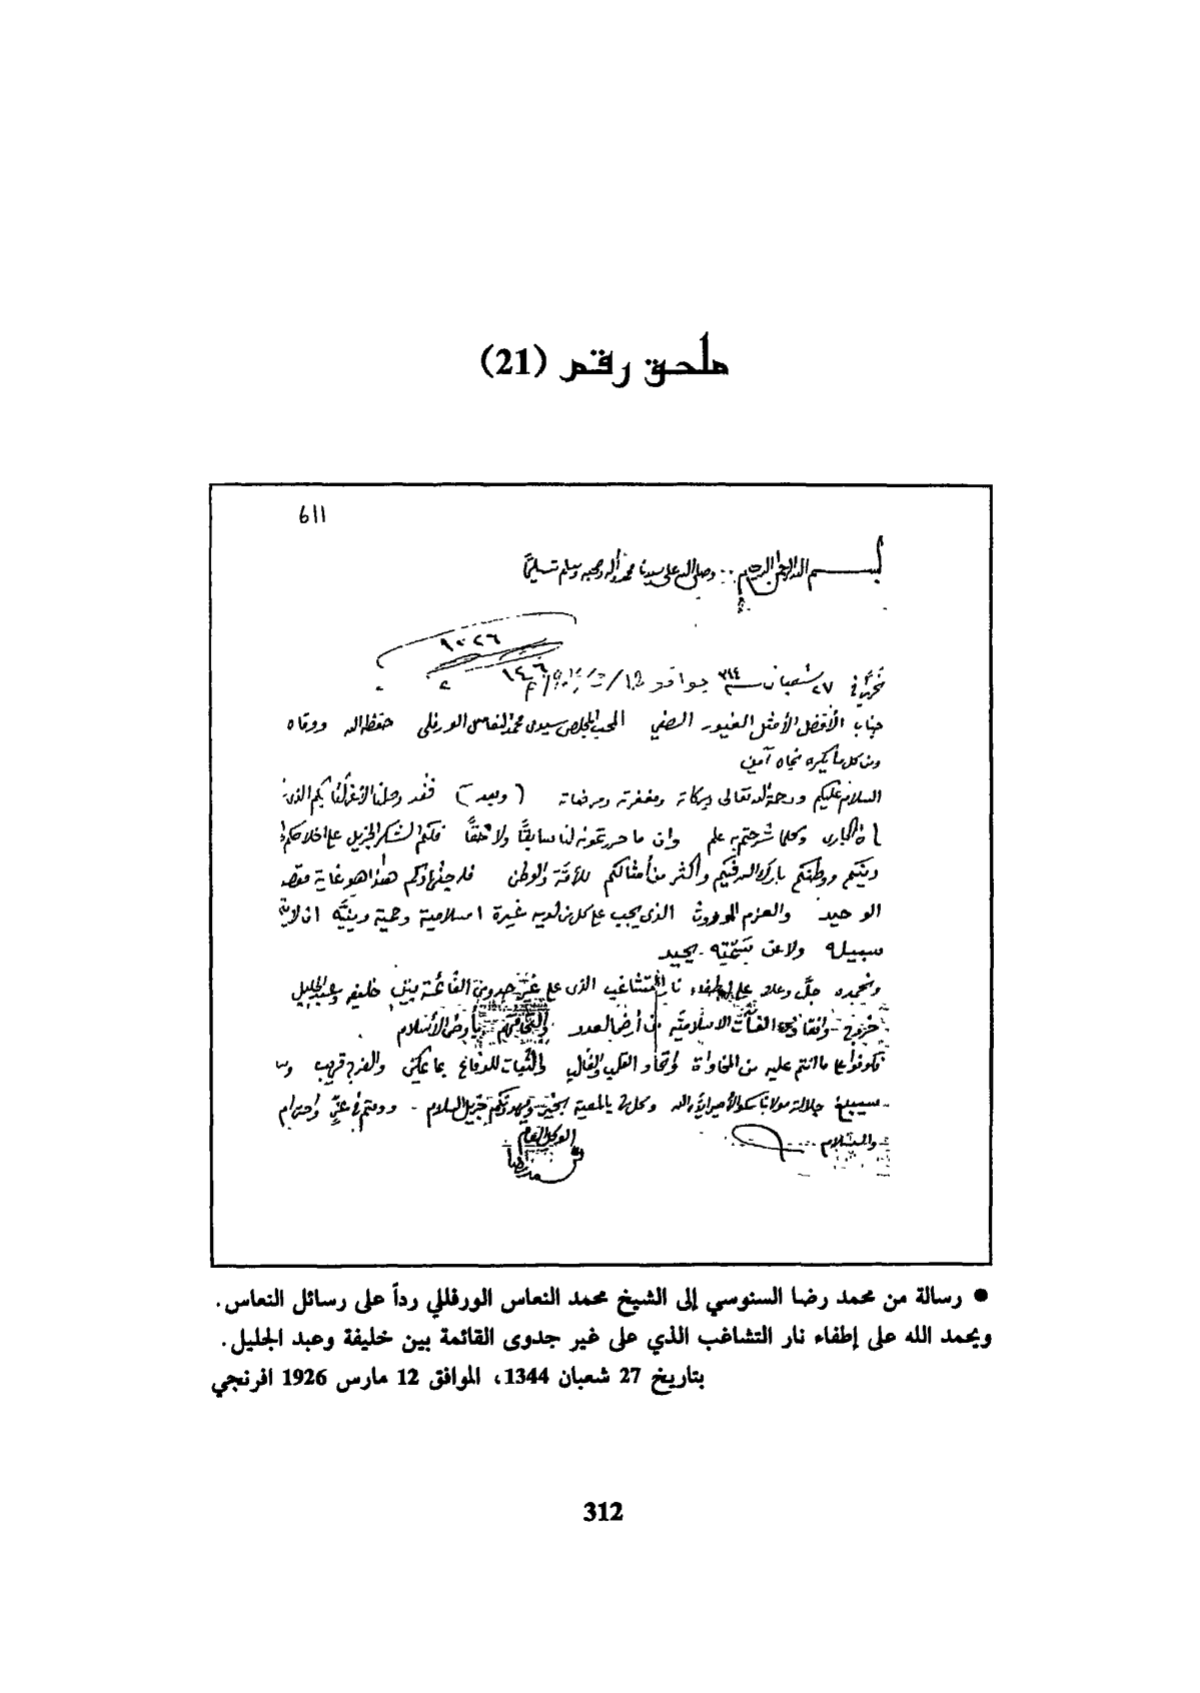 ملحق رقم (21)
611
بسم الله الرحمن الرحيم وصلى الله على سيدنا محمد وآله وصحبه وسلم تسليمًا
١٠٢٦
١٤٠٦
تحريرًا في ٢٧ شعبان سـ ٣٤٤ ـنة موافق 12/3/
جناب الأفضل الأمثل الغيور الصفي المحب المخلص سيدى محمد النعاس الورفلى حفظه الله ووقاه
ومن كل ما يكره نجاه آمين
السلام عليكم ورحمة الله تعالى وبركاته ومغفرته ومرضاته (وبعد) فقد وصلنا
الجارى وكلما شرحتم به علم وان ما حررتموه لنا سابقًا ولاحقًا فلكم الشكر الجزيل على اخلاصكم
دينكم ووطنكم بارك الله فيكم وأكثر من أمثالكم للأمة والوطن هذا هو غاية
الوحيد والعزم الذى يجب على كل من لديه غيرة اسلامية وحمية دينيَّه ان
سبيله ولا عن يحيد
ونحمده جلَّ وعلا على إطفاء نار التشاغب الذى على غير جدوى القائمة بين خليفه وعبد الجليل
خروج وانقاذ الاسلاميَّه من أرض العدو بأرض الأسلام
فكونوا على ما انتم عليه من واتحاد القلب والقالب والثبات للدفاع بما يمكن والفرج قريب
سيبلغ جلالة مولانا سمو الأمير وكل من بالمعية بخير ويهدونكم جزيل السلام - ودمتم في عزٍّ واحترام
والسلام
الوكيل العام
محمد رضا
● رسالة من محمد رضا السنوسي إلى الشيخ محمد النعاس الورفللي رداً على رسائل النعاس.
ويحمد الله على إطفاء نار التشاغب الذي على غير جدوى القائمة بين خليفة وعبد الجليل.
بتاريخ 27 شعبان 1344، الموافق 12 مارس 1926 افرنجي
312